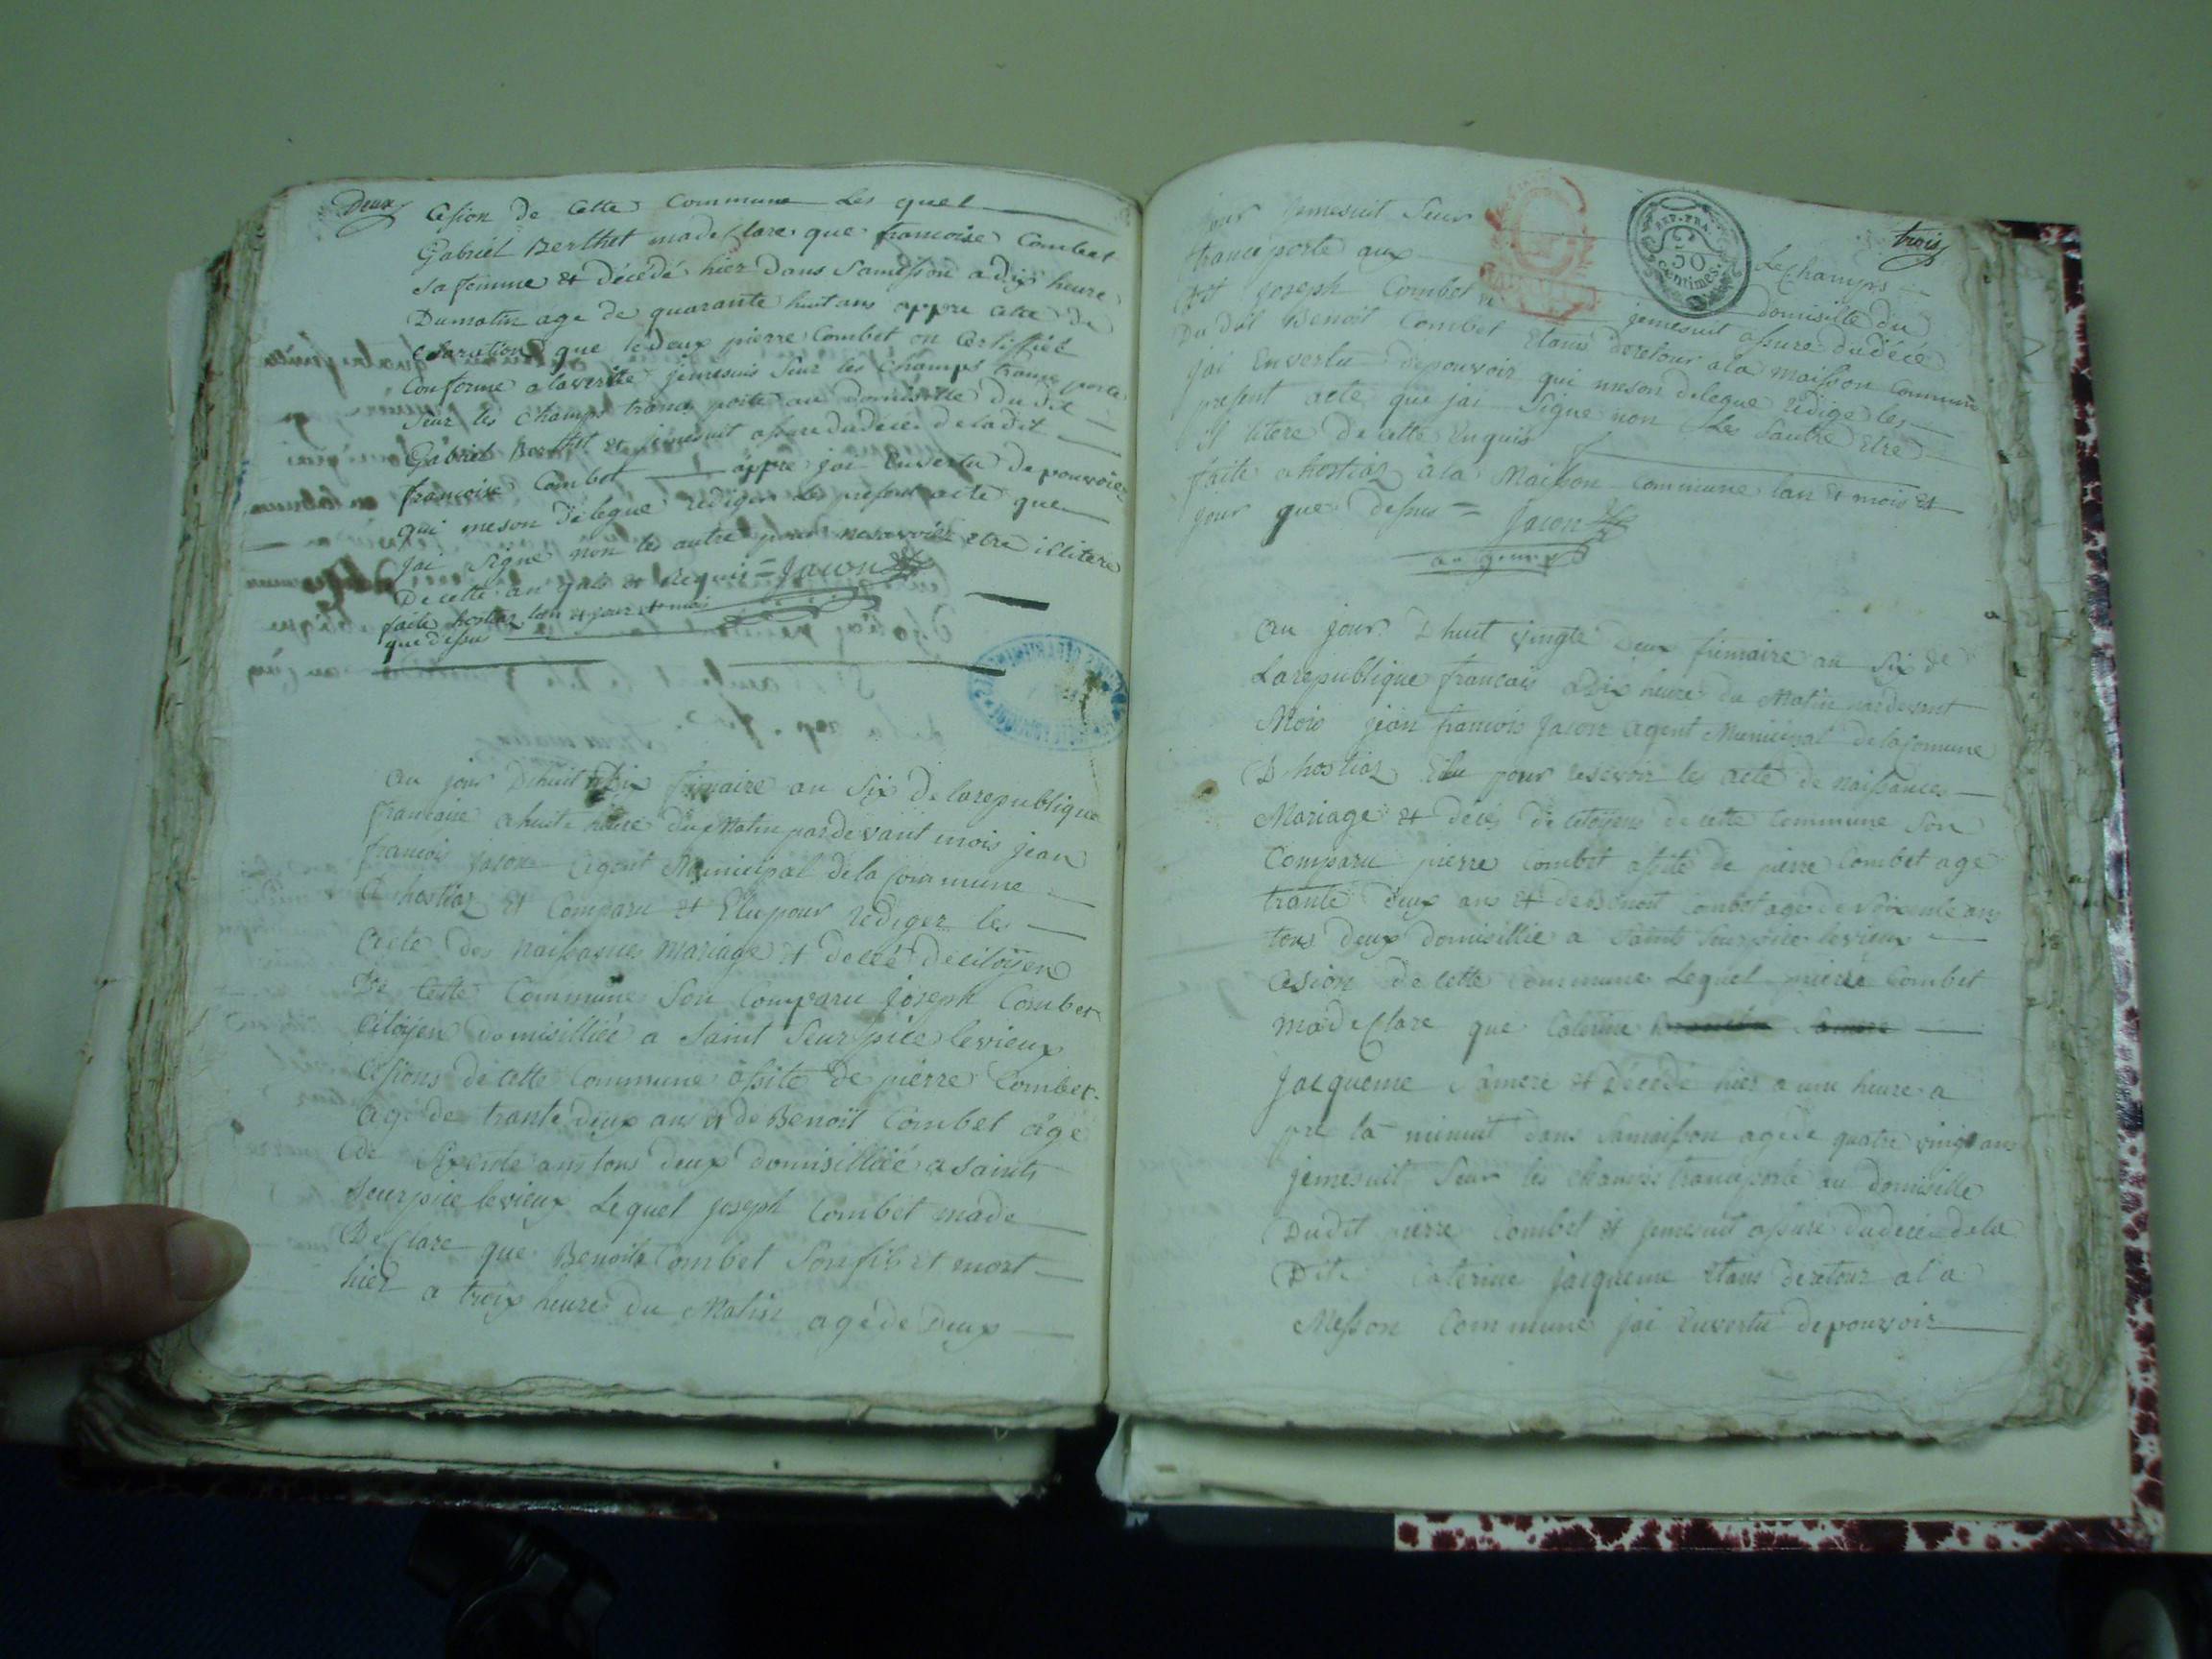 Deux
cesion de cette Commune Les quel
Gabriel Berthet madeclare que francoise Combet
sa femme et décédé hier dans samesson a dix heure
Dumatin age de quarante huit ans appre cette de
claration que ledeux pierre Combet on Certiffiée
Conforme alaverité jemesuis Seur les Champs trans porte
Seur les Champs trans porté au Domisille du dit
Gabriel Berthet et jemesuit assure dudécé de ladit
francoise Combet appre jai Envertu depouvoir
qui meson délégué rediger le present acte que
jai Signe non les autre pour nesavoir etre illitere
De cette an Requis = Jacon
faite hostiaz lan et jour et mois
que desus
au jour Dhuit Dix frimaire an Six de larepublique
francaise ahuit heure du Matin pardevant mois jean
francois jacon agent Municipal dela Commune
d hostiaz et Comparu et Elu pour rediger les
acte des naissances mariage et décé de citoyen
De cette Commune Son Comparu joseph Combet
Citoyen domisillié a Saint Seurpice levieux
cesions de cette Commune assité de pierre Combet
age de trante deux ans et de Benoit Combet âge
de Sixente ans tous deux domisillié a Saint
Seurpice levieux Lequel joseph Combet made
Declare que Benoit Combet Son fils et mort
hier a troix heures du Matin agé de Deux
jour jemesuit Seur Le Champs
transporté aux domisille du
dit joseph Combet jemesuit assure dudécé
Du dit Benoit Combet Etans deretour ala maison Commune
jai Envertu depouvoir qui meson delegue redige les
present acte que jai Signe non Les Sautre Etre
il litere de cette Enquis
faite ahostiaz à la Maison Commune lan et mois et
jour que dessus = Jacon
agent
REP. FRA.
50
centimes.
trois
au jour D huit vingte deux frimaire an Six de
Larepublique francais a Dix heure du Matin pardevant
Mois jean francois Jacon agent Municipal delacomune
D hostiaz Elu pour resevoir les acte de naissances
Mariage et décés de citoyens de cette Commune Son
Comparu pierre Combet assité de pierre Combet age
trante deux ans et de Benoit Combet age de Soixente ans
tous deux domisillié a Saint Seurpice levieux
Cesion de cette Commune Lequel pierre Combet
madeclare que Caterine
Jacqueme Samere et Decede hier a une heure a
pré la minuit dans Samaison agé de quatre vingt ans
jemesuit Seur les champs transporté au domisille
Dudit pierre Combet et jemesuit assuré dudécé dela
Dite Caterine jacqueme Etans deretour al a
Messon Commune jai Envertu depouvoir